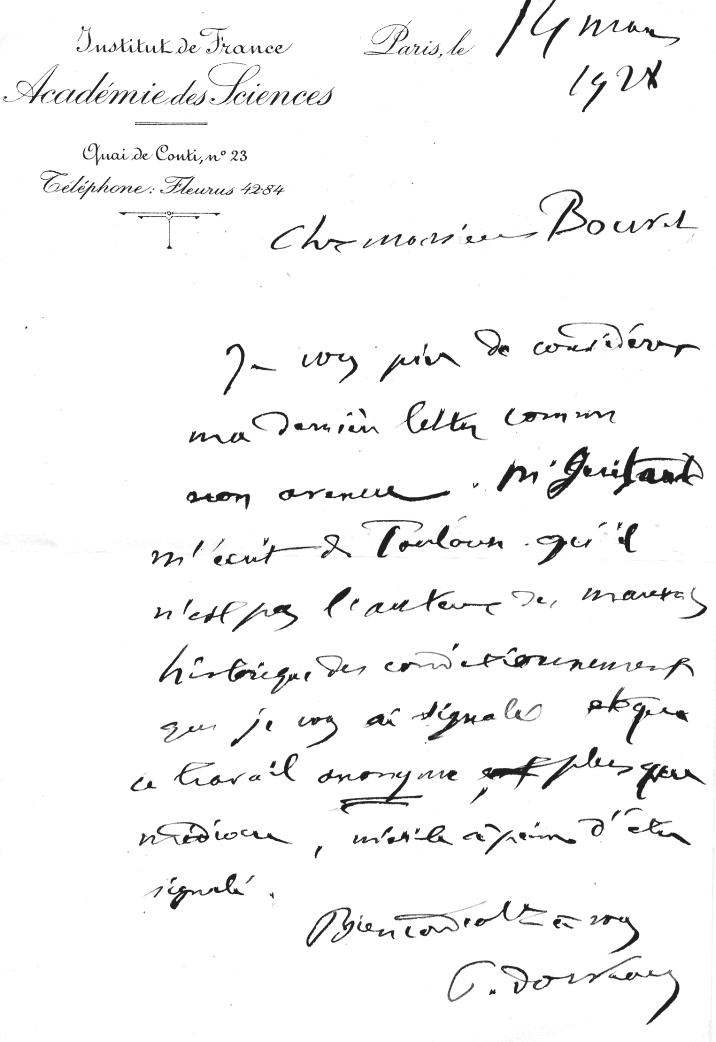 Institut de France
Académie des Sciences
Quai de Conti, n° 23
Téléphone: Fleurus 42-84
Paris, le 14 mars
1928
Cher monsieur Bouvet
Je vous prie de considérer
ma dernière lettre comme
non avenue. Mr
m'écrit de Toulouse qu'il
n'est pas l'auteur du mauvais
historique des conditionnement
que je vous ai signalé et que
ce travail anonyme, plus que
médiocre, mérite à peine d'être
signalé.
Bien cordialt à vous